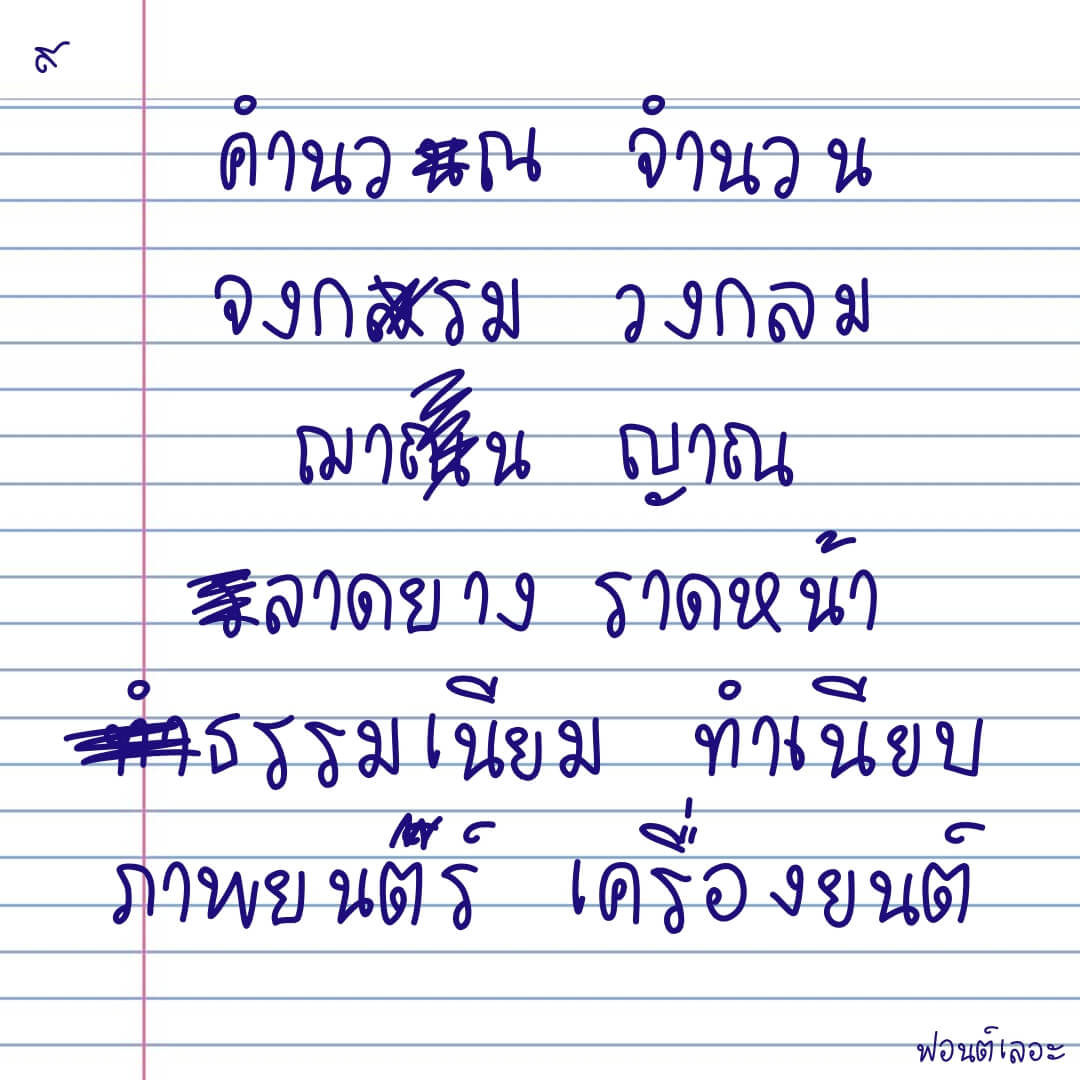 ส
คำนวณ จำนวน
จงกรม วงกลม
ฌาน ญาณ
ลาดยาง ราดหน้า
ธรรมเนียม ทำเนียบ
ภาพยนตร์ เครื่องยนต์
ฟอนต์เลอะ